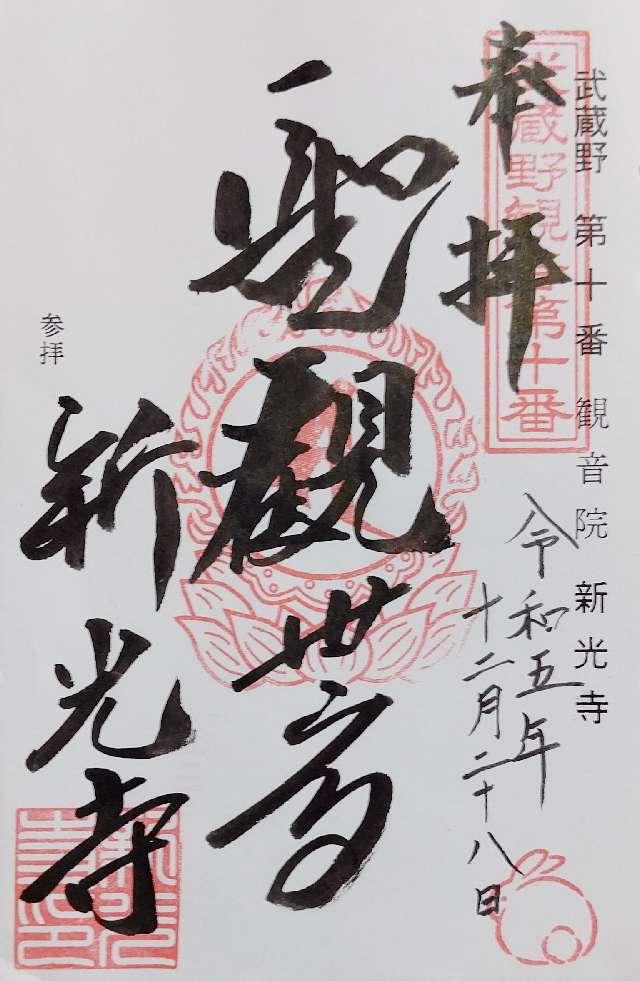 武蔵野 第十番 観音院 新光寺
武蔵野観音第十番
奉拝
令和五年
十二月二十八日
聖観世音
参拝
新光寺